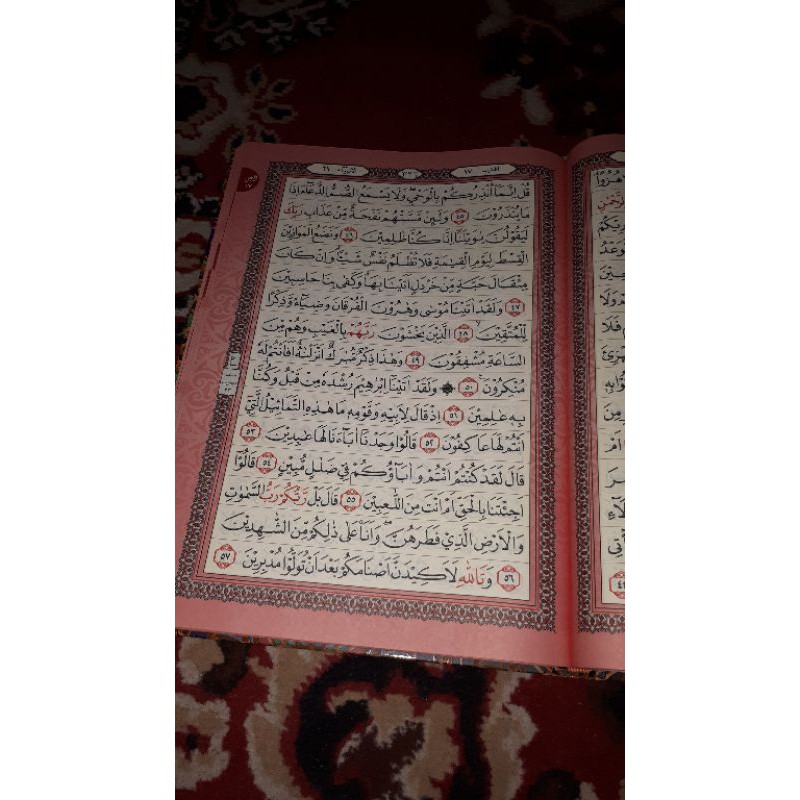 الانبياء ٢١
٣٢٦
اقترب ١٧
قُلْ اِنَّمَا اُنْذِرُكُمْ بِالْوَحْيِ وَلَا يَسْمَعُ الصُّمُّ الدُّعَاءَ اِذَا
مَا يُنْذَرُوْنَ ٤٥ وَلَئِنْ مَسَّتْهُمْ نَفْحَةٌ مِنْ عَذَابِ رَبِّكَ
لَيَقُوْلُنَّ يٰوَيْلَنَا اِنَّا كُنَّا ظٰلِمِيْنَ ٤٦ وَنَضَعُ الْمَوَازِيْنَ
الْقِسْطَ لِيَوْمِ الْقِيٰمَةِ فَلَا تُظْلَمُ نَفْسٌ شَيْئًا وَاِنْ كَانَ
مِثْقَالَ حَبَّةٍ مِنْ خَرْدَلٍ اَتَيْنَا بِهَا وَكَفٰى بِنَا حَاسِبِيْنَ
٤٧ وَلَقَدْ اٰتَيْنَا مُوْسٰى وَهٰرُوْنَ الْفُرْقَانَ وَضِيَاءً وَذِكْرًا
لِلْمُتَّقِيْنَ ٤٨ الَّذِيْنَ يَخْشَوْنَ رَبَّهُمْ بِالْغَيْبِ وَهُمْ مِنَ
السَّاعَةِ مُشْفِقُوْنَ ٤٩ وَهٰذَا ذِكْرٌ مُبٰرَكٌ اَنْزَلْنٰهُ اَفَاَنْتُمْ لَهُ
مُنْكِرُوْنَ ٥٠ وَلَقَدْ اٰتَيْنَا اِبْرٰهِيْمَ رُشْدَهُ مِنْ قَبْلُ وَكُنَّا
بِهِ عٰلِمِيْنَ ٥١ اِذْ قَالَ لِاَبِيْهِ وَقَوْمِهِ مَا هٰذِهِ التَّمَاثِيْلُ الَّتِيْ
اَنْتُمْ لَهَا عَاكِفُوْنَ ٥٢ قَالُوْا وَجَدْنَا اٰبَاءَنَا لَهَا عٰبِدِيْنَ ٥٣
قَالَ لَقَدْ كُنْتُمْ اَنْتُمْ وَاٰبَاؤُكُمْ فِيْ ضَلٰلٍ مُبِيْنٍ ٥٤ قَالُوْا
اَجِئْتَنَا بِالْحَقِّ اَمْ اَنْتَ مِنَ اللّٰعِبِيْنَ ٥٥ قَالَ بَلْ رَبُّكُمْ رَبُّ السَّمٰوٰتِ
وَالْاَرْضِ الَّذِيْ فَطَرَهُنَّ وَاَنَا عَلٰى ذٰلِكُمْ مِنَ الشّٰهِدِيْنَ
٥٦ وَتَاللّٰهِ لَاَكِيْدَنَّ اَصْنَامَكُمْ بَعْدَ اَنْ تُوَلُّوْا مُدْبِرِيْنَ ٥٧